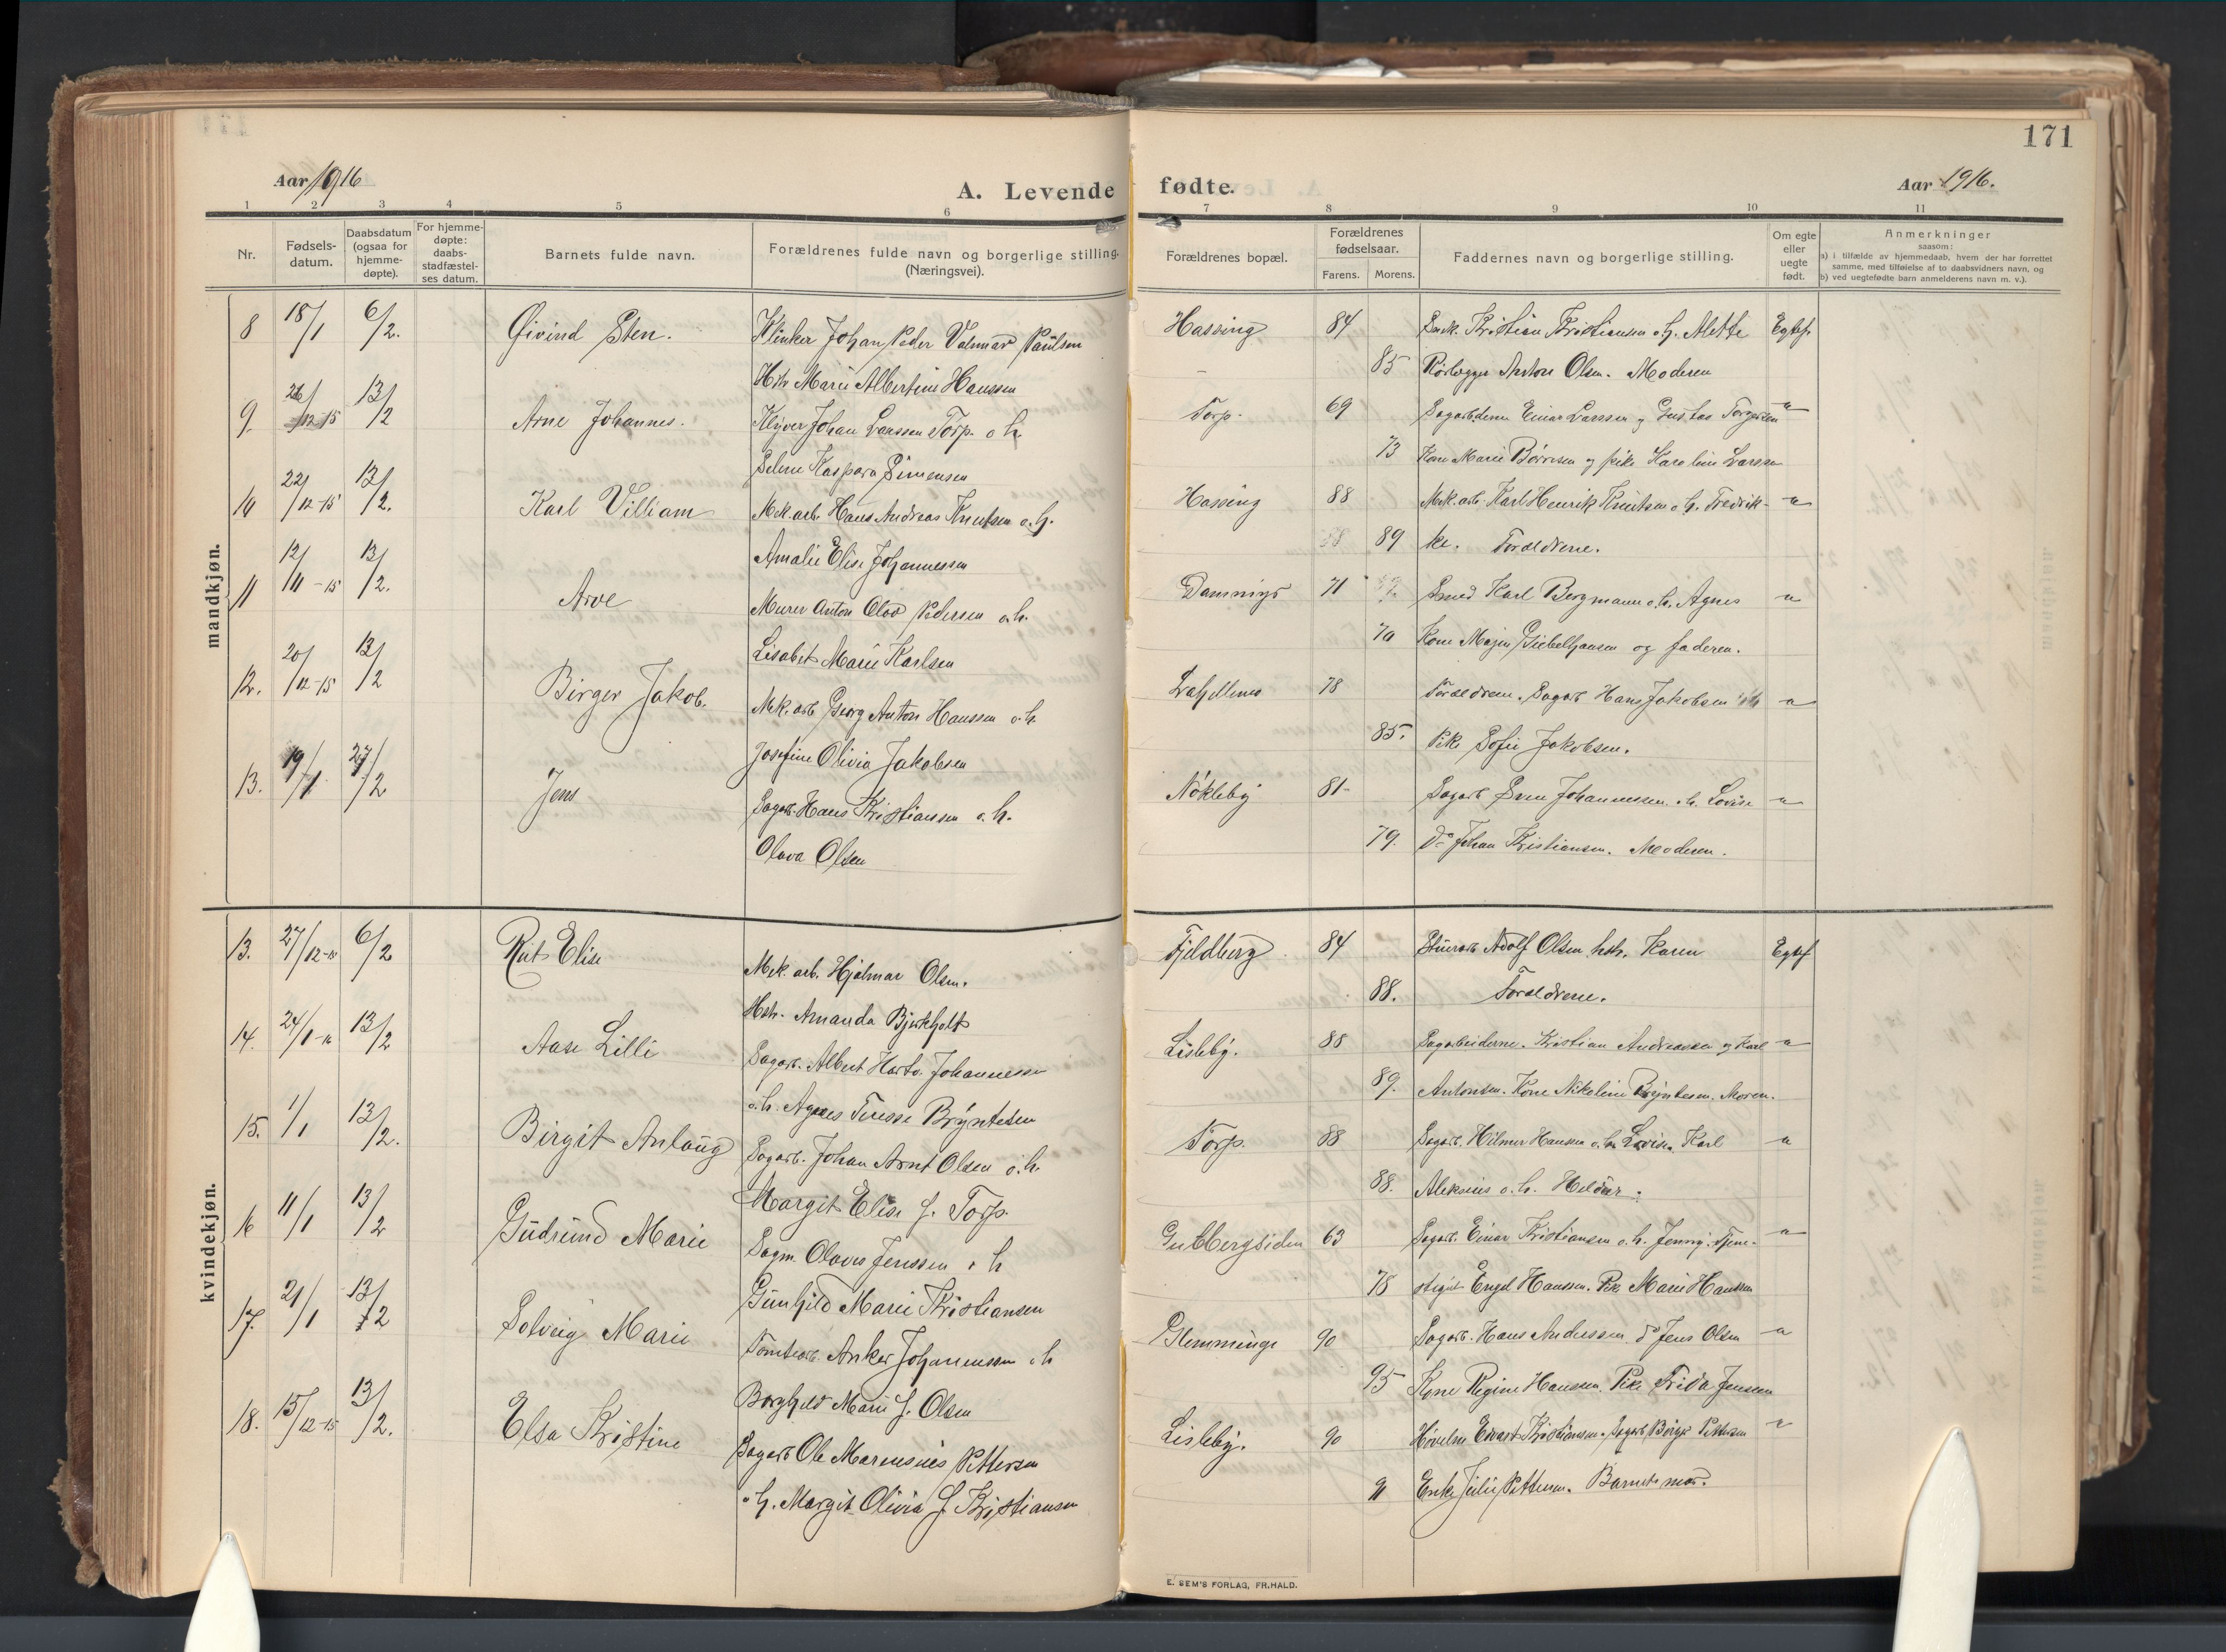 171
Aar 1916
A. Levende fødte.
Aar 1916.
1 2 3 4 5 6 7 8 9 10 11
Nr.
Fødsels-
datum.
Daabsdatum
(ogsaa for
hjemme-
døpte).
For hjemme-
døpte:
daabs-
stadfæstel-
ses datum.
Barnets fulde navn.
Forældrenes fulde navn og borgerlige stilling.
(Næringsvei).
Forældrenes bopæl.
Forældrenes
fødselsaar.
Farens. Morens.
Faddernes navn og borgerlige stilling.
Om egte
eller
uegte
født.
Anmerkninger
saasom:
a) i tilfælde av hjemmedaab, hvem der har forrettet
samme, med tilføielse af to daabsvidners navn, og
b) ved uegtefødte barn anmelderens navn m. v.).
mandkjøn.
8 18/1 6/2. Øivind Sten. Klinker Johan Peder Valmar Paulsen Hassing 84 Kristian Kristiansen o. h. Alette Egtef.
Hstr Marie Albertine Hanssen 85 Rørlegger Anton Olsen. Moderen
9. 26/12-15 13/2 Arne Johannes. Kløver Johan Larssen Torp. o h. Torp. 69 Sagarbeiderne Einar Larssen og Gustav Torgersen "
Selene Kaspara Simensen 73 Kone Marie Børresen og pike Karoline Larssen
10 22/12-15 13/2. Karl Villiam Mek. arb. Hans Andreas Knutsen o. h. Hassing 88 Mek. arb. Karl Henrik Knutsen o. h. Fredrik- "
Amalie Elise Johannessen 89 ke. Forældrene.
11 12/11-15 13/2. Arve Murer Anton Olav Pedersen o. h. 71 Smed Karl Bergmann o. h. Agnes "
Lisabet Marie Karlsen 70 Kone Majen Giebelhausen og faderen.
12. 20/12-15 13/2 Birger Jakob. Mek. arb. Georg Anton Hanssen o. h. 78 Forældrene. Sagarb Hans Jakobsen "
Josefine Olivia Jakobsen 85. Pike Sofie Jakobsen.
13. 19/1 27/2 Jens Sagarb. Hans Kristiansen o. h. Nøkleby 81- Sagarb Sven Johannessen o. h. Lovise "
Olava Olsen 79. Do Johan Kristiansen. Moderen.
kvindekjøn.
13. 27/12-15 6/2 Rut Elise Mek. arb. Hjalmar Olsen. Fjeldberg 84 Adolf Olsen hstr. Karen Egtef
Hstr. Amanda Bjerkholt 88. Forældrene.
14. 24/1 13/2 Aase Lilli Sagarb. Albert Hartv. Johannessen Lisleby. 88 Sagarbeiderne. Kristian Andreassen og Karl "
o. h. Agnes Teresse Bryntesen 89. Antonsen. Kone Nikoline Bryntesen. Moren.
15. 1/1 13/2. Birgit Anlaug Sagarb. Johan Arnt Olsen o. h. Torp. 88 Sagarb. Hilmer Hansen o. h. Lovise. Karl "
Margit Elise f. Torp. 88. Aleksius o. h. Heldur.
16 11/1 13/2 Gudrund Marie Sagm. Olavus Jenssen o h Gubbergsiden 63 Sagarb. Einar Kristiansen o. h. Jenny. Tjene- "
Gunhild Marie Kristiansen 78 stegut Engel Hanssen. Pike Marie Hanssen
17. 21/1 13/2 Solveig Marie Tomtearb. Anker Johannessen o h Glemminge 90 Sagarb. Hans Anderssen. do Jens Olsen "
Borghild Marie f. Olsen 95 Kone Regine Hanssen. Pike Frida Jenssen
18. 15/12-15 13/2. Elsa Kristine Sagarb Ole Marensius Pettersen Lisleby. 90 Høvelm Kristiansen. Sagarb Børge Pettersen "
o. h. Margit Olivia f. Kristiansen 91 Enke Julie Pettersen. Barnets mor.
E. SEM'S FORLAG, FR.HALD.